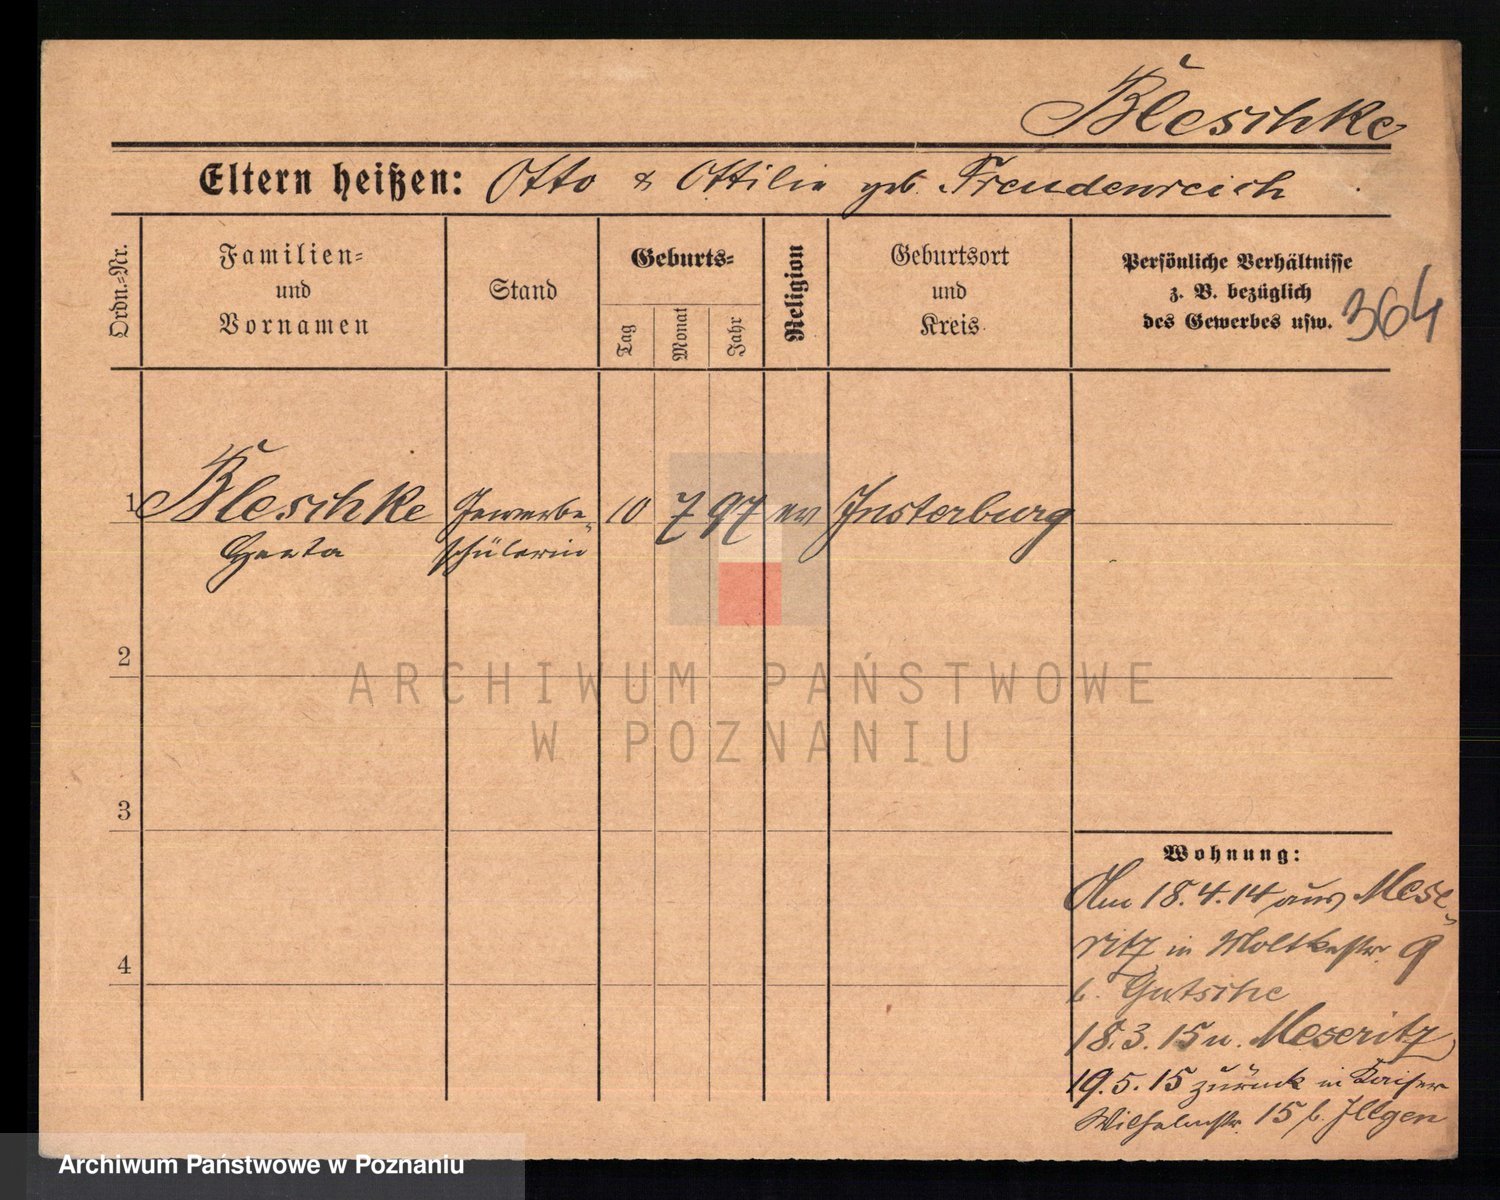 Bleschke
Eltern heißen: Otto & Ottilie geb. Freudenreich
Ordn.=Nr.
Familien=
und
Vornamen
Stand
Geburts=
Tag
Monat
Jahr
Religion
Geburtsort
und
Kreis
Persönliche Verhältnisse
z. B. bezüglich
des Gewerbes usw.
364
1 Bleschke Gewerbe= 10 7 97 ev Insterburg
schülerin
2
3
4
ARCHIWUM PAŃSTWOWE
W POZNANIU
Wohnung:
Am 18.4.14 aus Mese=
ritz in Moltkestr. 9
b. Gutsche
18.3.15 n. Meseritz
19.5.15 zurück in Kaiser
Wilhelmstr. 15 b. Illgen
Archiwum Państwowe w Poznaniu